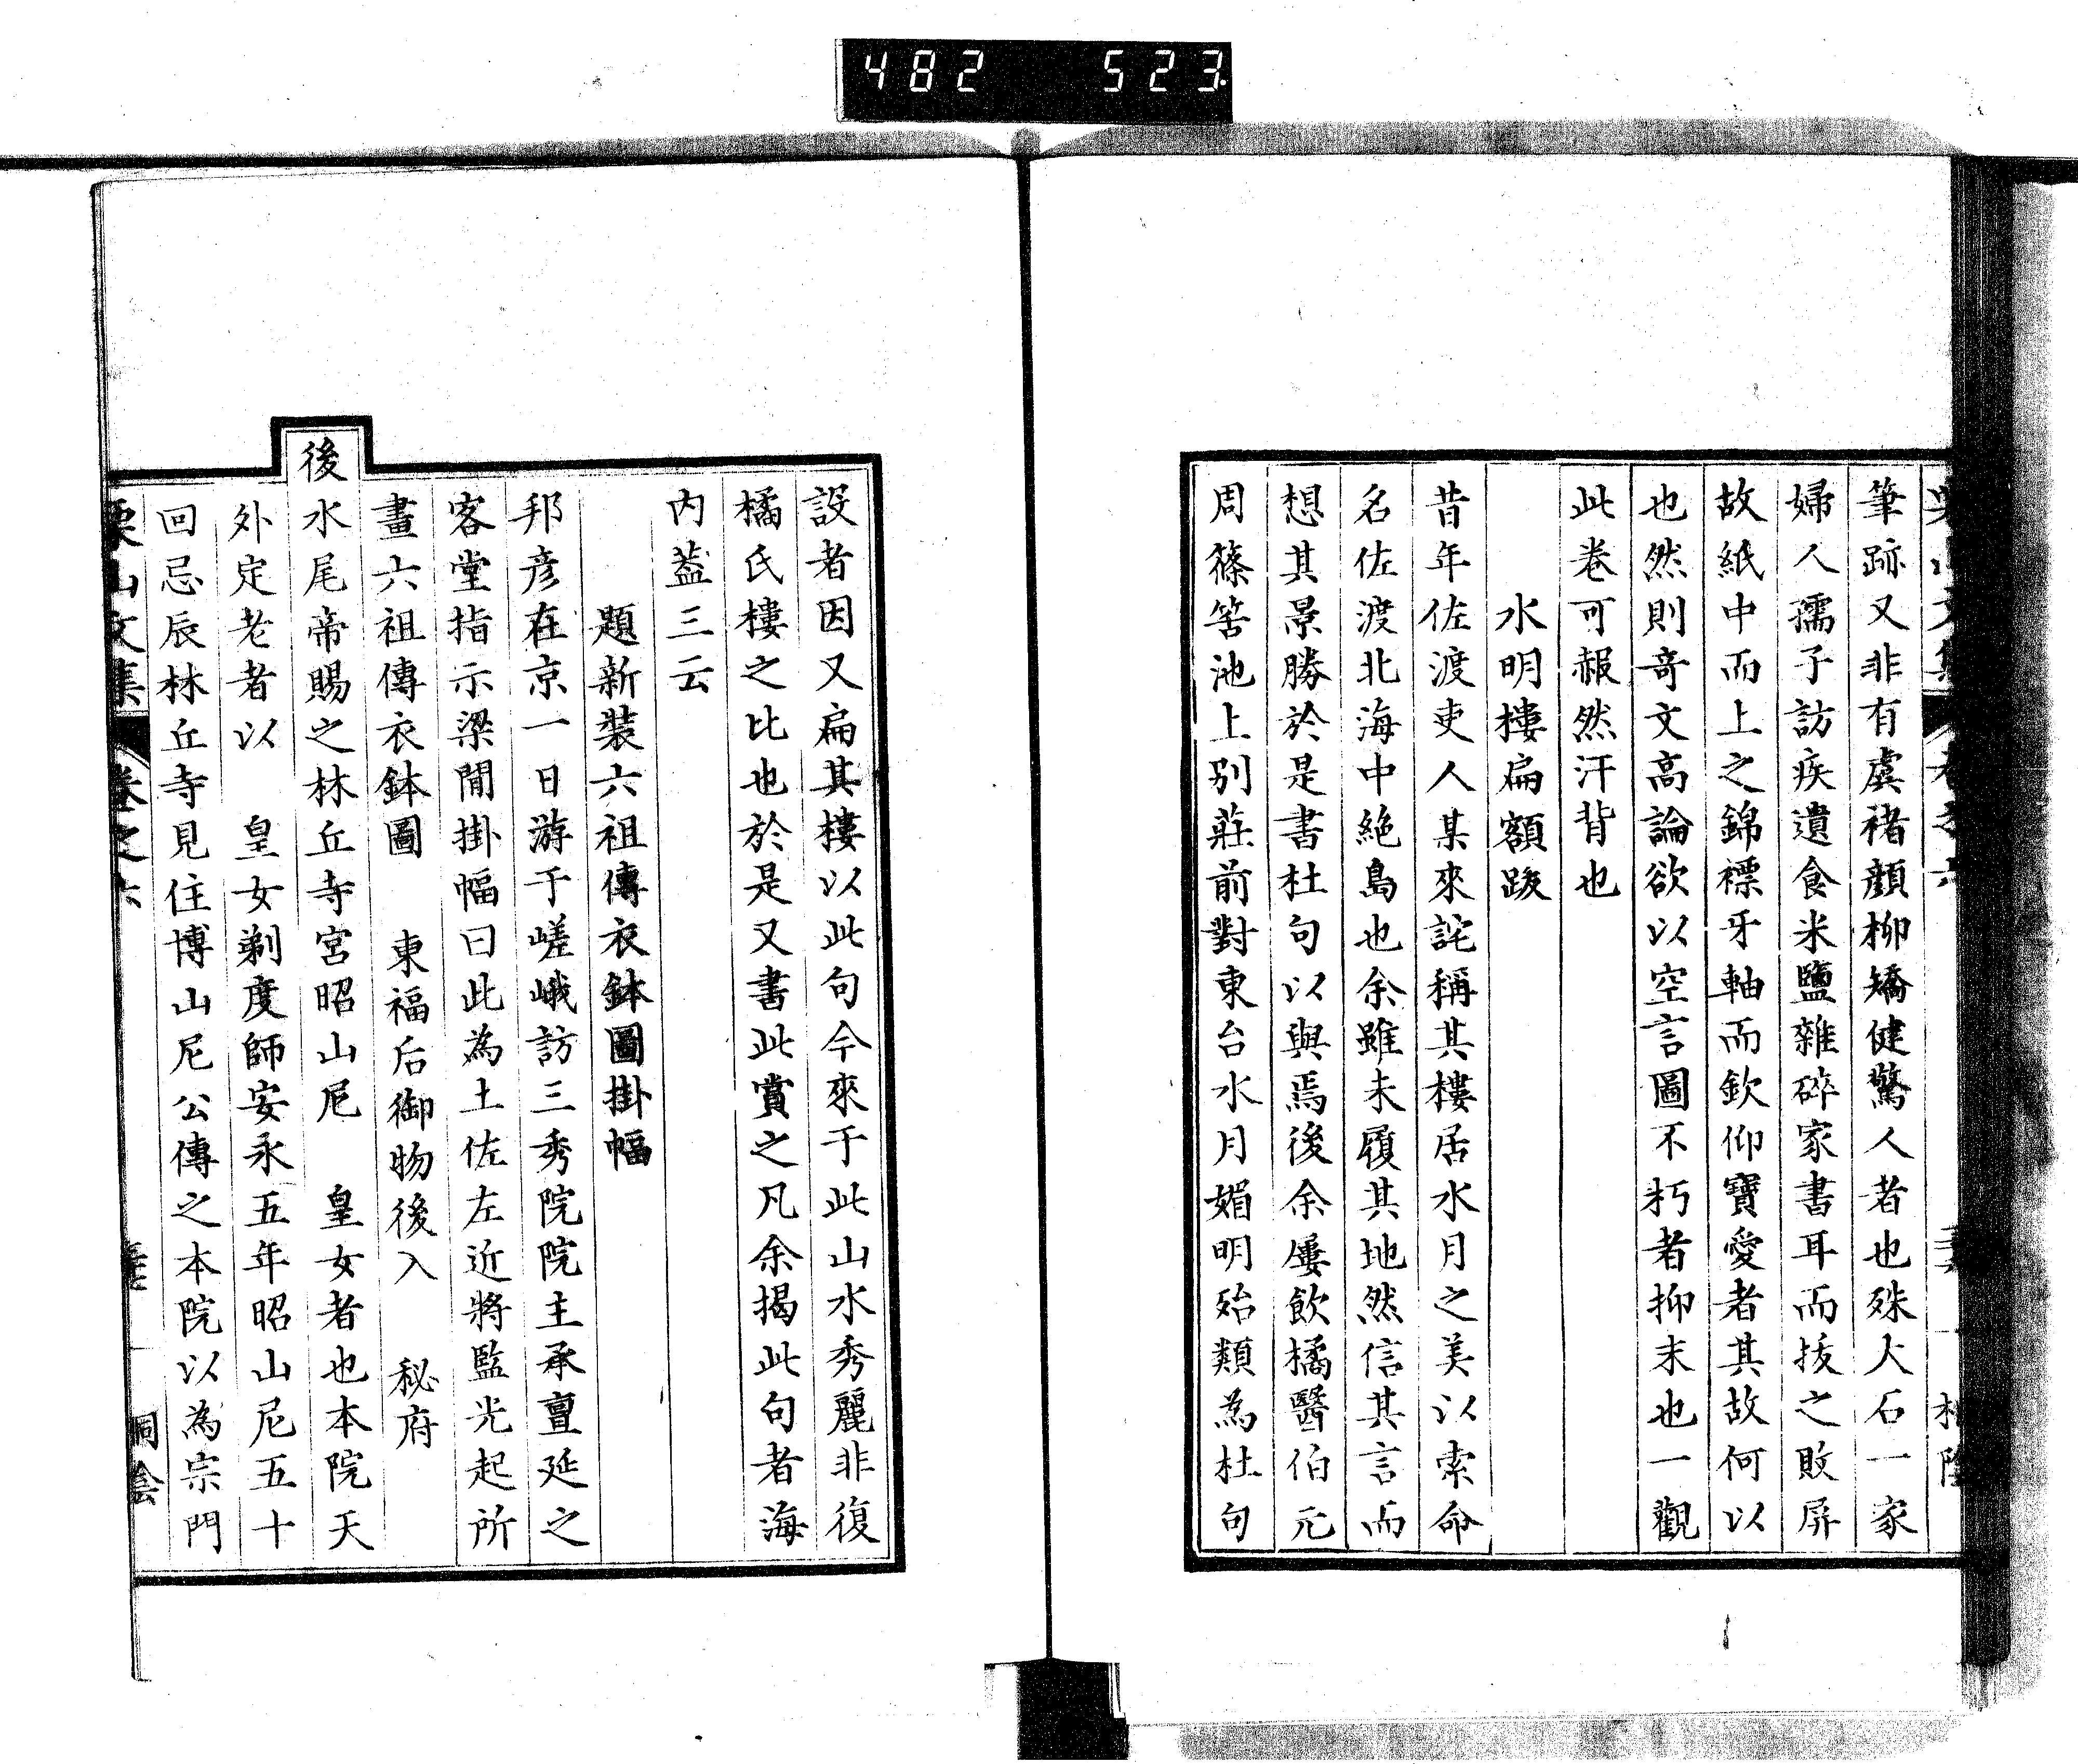 482 523
筆跡又非有虞褚顔柳矯健驚人者也殊大石一家
婦人孺子訪疾遺食米鹽雜碎家書耳而拔之敗屏
故紙中而上之錦褾牙軸而欽仰寶愛者其故何以
也然則奇文高論欲以空言圖不朽者抑末也一觀
此卷可赧然汗背也
水明樓扁額跋
昔年佐渡吏人某來詫稱其樓居水月之美以索命
名佐渡北海中絶島也余雖未履其地然信其言而
想其景勝於是書杜句以與焉後余屢飲橘醫伯元
周篠筈池上別莊前對東台水月媚明殆類為杜句
設者因又扁其樓以此句今來于此山水秀麗非復
橘氏樓之比也於是又書此賞之凡余揭此句者海
内葢三云
題新裝六祖傳衣鉢圖掛幅
邦彦在京一日游于嵯峨訪三秀院院主承亶延之
客堂指示梁間掛幅曰此為土佐左近將監光起所
畫六祖傳衣鉢圖 東福后御物後入 秘府
後水尾帝賜之林丘寺宮昭山尼 皇女者也本院天
外定老者以 皇女剃度師安永五年昭山尼五十
回忌辰林丘寺見住博山尼公傳之本院以為宗門
栗山文集 卷之六